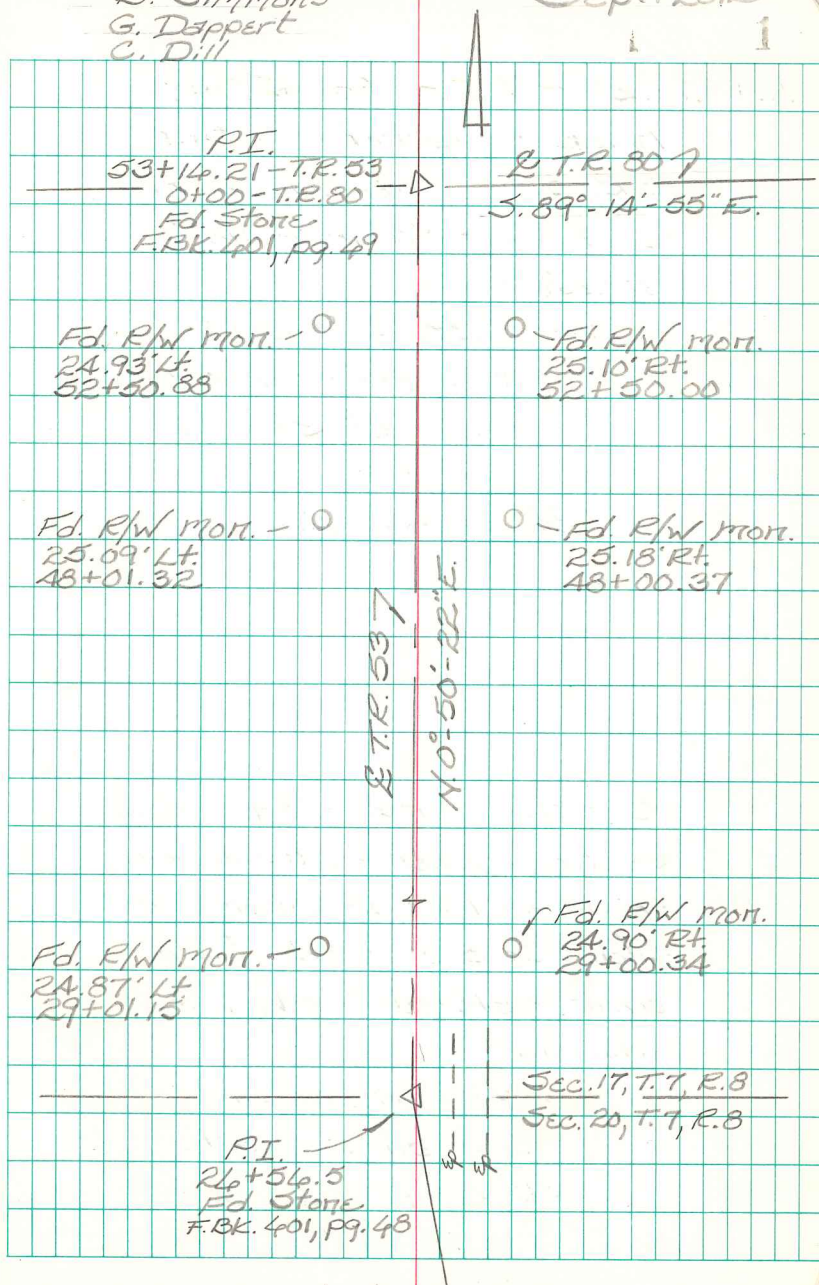 Simmons
G. Dappert
C. Dill
1
P.I.
53+16.21-T.R.53
0+00-T.R.80
Fd. Stone
F.BK. 401, pg. 49
℄ T.R. 80
S.89°-14'-55"E.
Fd. R/W mon.
24.93' Lt.
52+50.88
Fd. R/W mon.
25.10' Rt.
52+50.00
Fd. R/W mon.
25.09' Lt.
48+01.32
Fd. R/W mon.
25.18' Rt.
48+00.37
℄ T.R. 53
N.0°-50'-22"E.
Fd. R/W mon.
24.87' Lt
29+01.15
Fd. R/W mon.
24.90' Rt.
29+00.34
Sec. 17, T.7, R.8
Sec. 20, T.7, R.8
P.I.
26+56.5
Fd. Stone
F.BK. 401, pg. 48
EP
EP